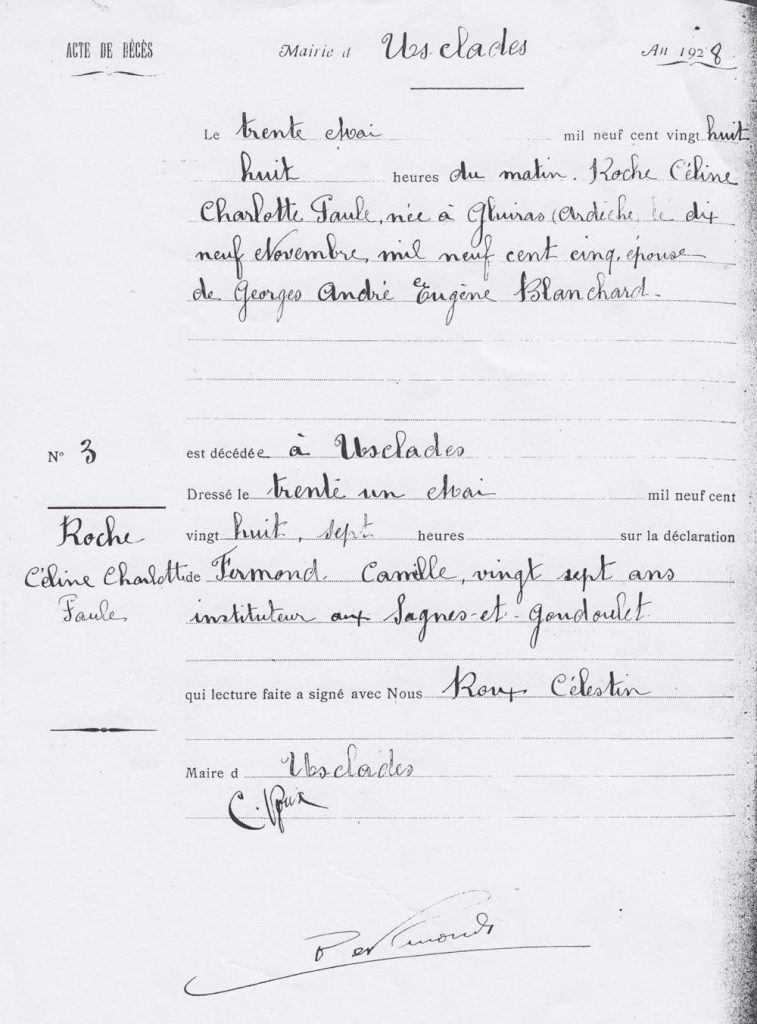 ACTE DE DÉCÈS
Mairie d Usclades
An 1928
Le trente Mai mil neuf cent vingt huit
huit heures du matin. Roche Céline
Charlotte Paule, née à Gluiras (Ardèche, le dix
neuf Novembre, mil neuf cent cinq, épouse
de Georges André Eugène Blanchard.
N° 3
est décédée à Usclades
Dressé le trente un Mai mil neuf cent
vingt huit, sept heures sur la déclaration
Roche
Céline Charlotte
Paule
de Fermond Camille, vingt sept ans
instituteur aux Sagnes-et-Goudoulet
qui lecture faite a signé avec Nous Roux Célestin
Maire d Usclades
C. Roux